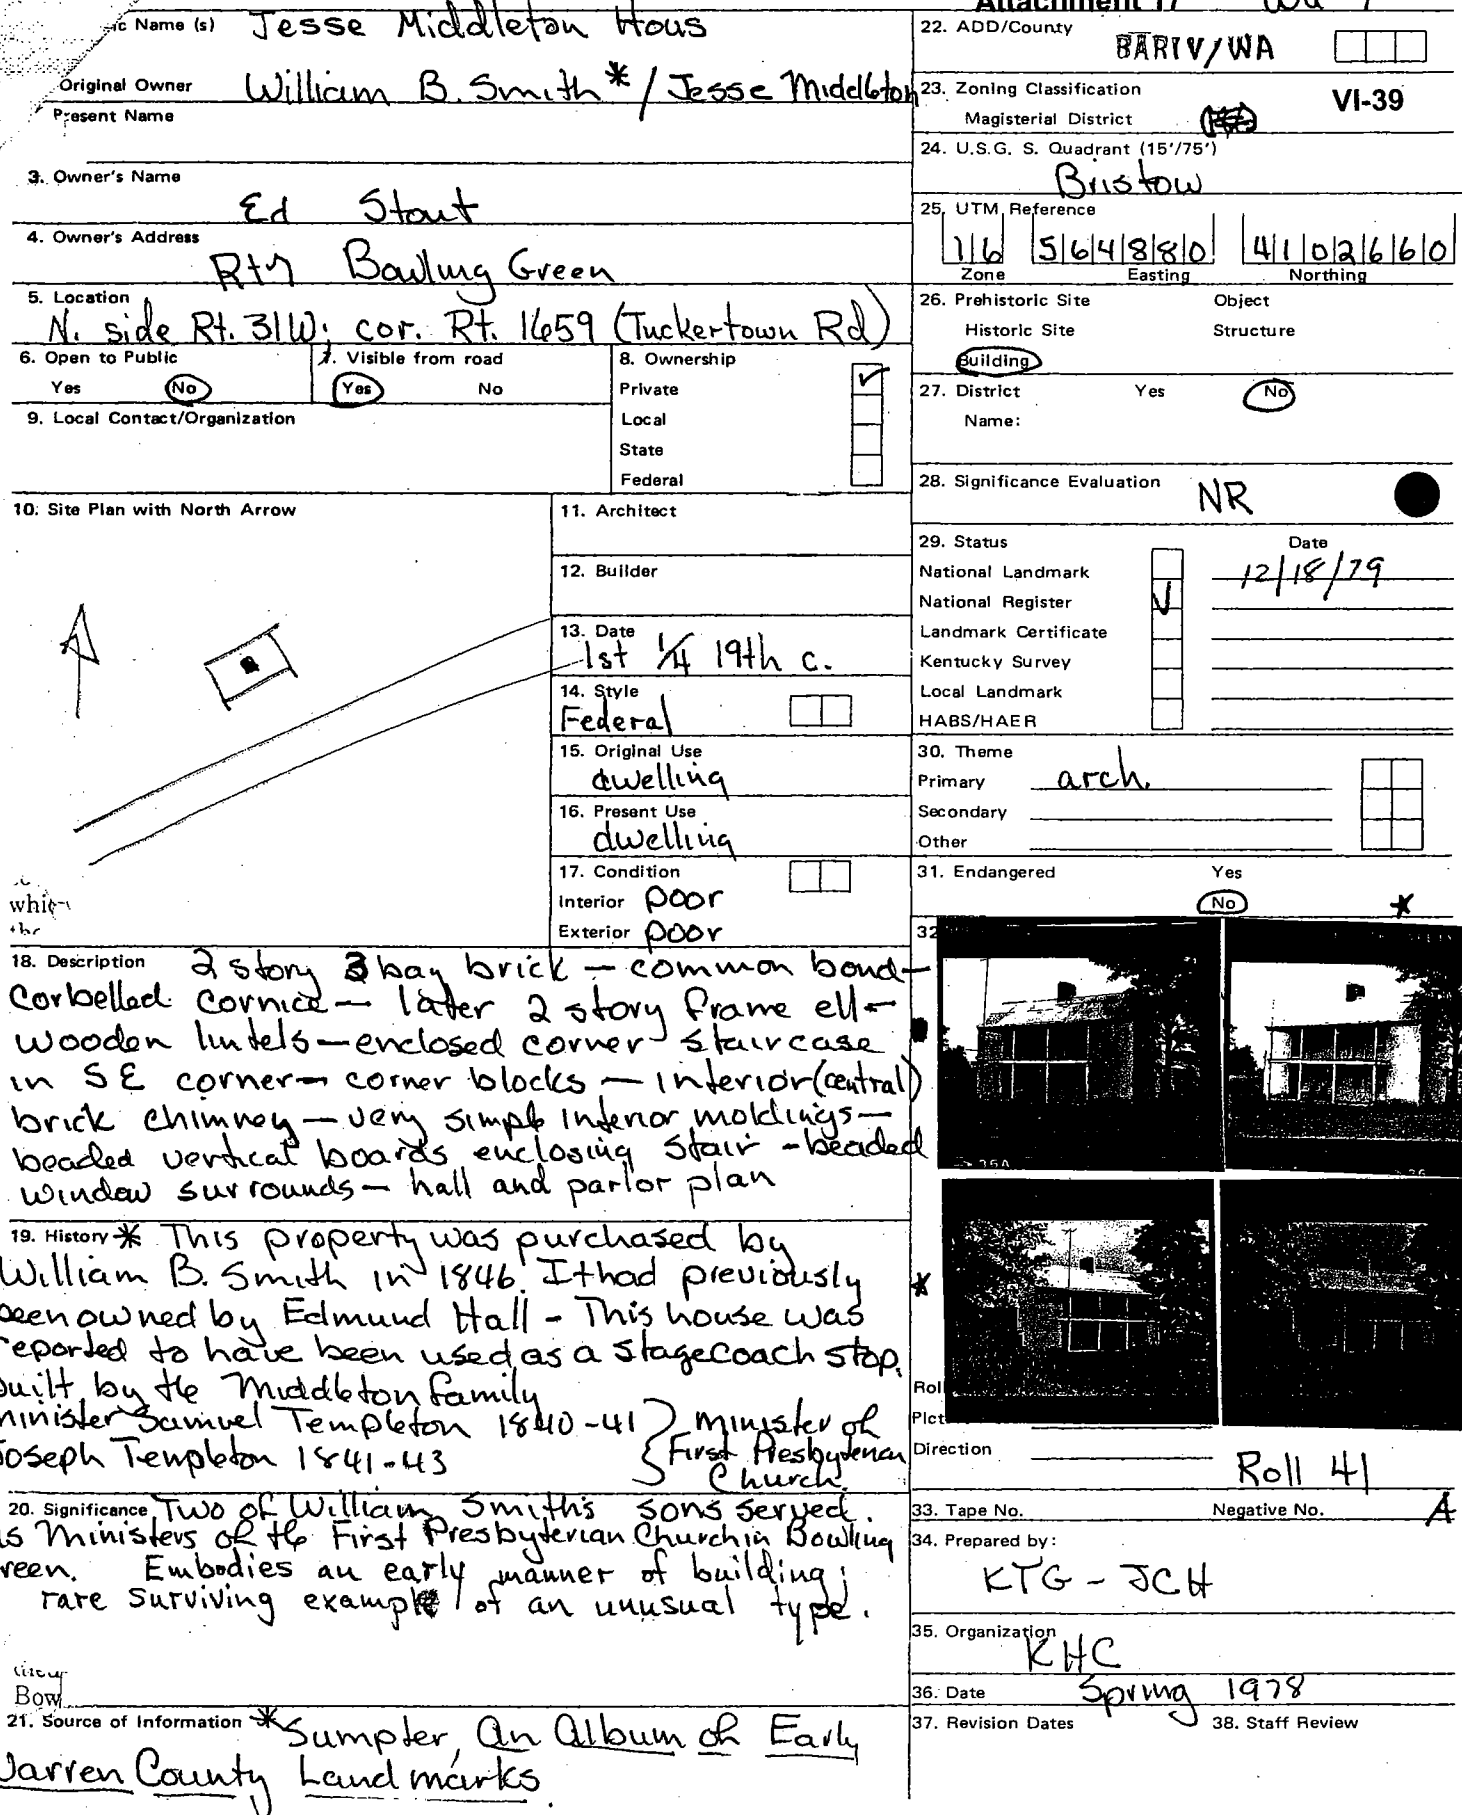 Attachment 17
ic Name (s) Jesse Middleton Hous
Original Owner William B. Smith* / Jesse Middleton
Present Name
3. Owner's Name
Ed Stout
4. Owner's Address
Rt 7 Bowling Green
5. Location
N. side Rt. 31W; cor. Rt. 1659 (Tuckertown Rd)
6. Open to Public
Yes No
7. Visible from road
Yes No
8. Ownership
Private ✓
Local
State
Federal
9. Local Contact/Organization
10. Site Plan with North Arrow
11. Architect
12. Builder
13. Date
1st 1/4 19th c.
14. Style
Federal
15. Original Use
dwelling
16. Present Use
dwelling
17. Condition
Interior poor
Exterior poor
18. Description 2 story 3 bay brick — common bond —
corbelled cornice — later 2 story frame ell —
wooden lintels — enclosed corner staircase
in SE corner — corner blocks — interior (central)
brick chimney — very simple interior moldings —
beaded vertical boards enclosing stair - beaded
window surrounds — hall and parlor plan
19. History * This property was purchased by
William B. Smith in 1846. It had previously
been owned by Edmund Hall - This house was
reported to have been used as a stagecoach stop.
built by the Middleton family
minister Samuel Templeton 1840-41 } minister of
Joseph Templeton 1841-43 } First Presbyterian
Church.
20. Significance Two of William Smith's sons served
as Ministers of the First Presbyterian Church in Bowling
reen. Embodies an early manner of building;
rare surviving example of an unusual type.
Bow
21. Source of Information * Sumpter, An Album of Early
Warren County Landmarks.
22. ADD/County
BARIV/WA
23. Zoning Classification
Magisterial District
VI-39
24. U.S.G. S. Quadrant (15'/75')
Bristow
25. UTM Reference
16 564880 4102660
Zone Easting Northing
26. Prehistoric Site Object
Historic Site Structure
Building
27. District Yes No
Name:
28. Significance Evaluation NR
29. Status Date
National Landmark 12/18/79
National Register ✓
Landmark Certificate
Kentucky Survey
Local Landmark
HABS/HAER
30. Theme
Primary arch.
Secondary
Other
31. Endangered Yes
No *
32
Rol
Pict
Direction
Roll 41
33. Tape No. Negative No. A
34. Prepared by:
KTG - JCH
35. Organization
KHC
36. Date Spring 1978
37. Revision Dates 38. Staff Review